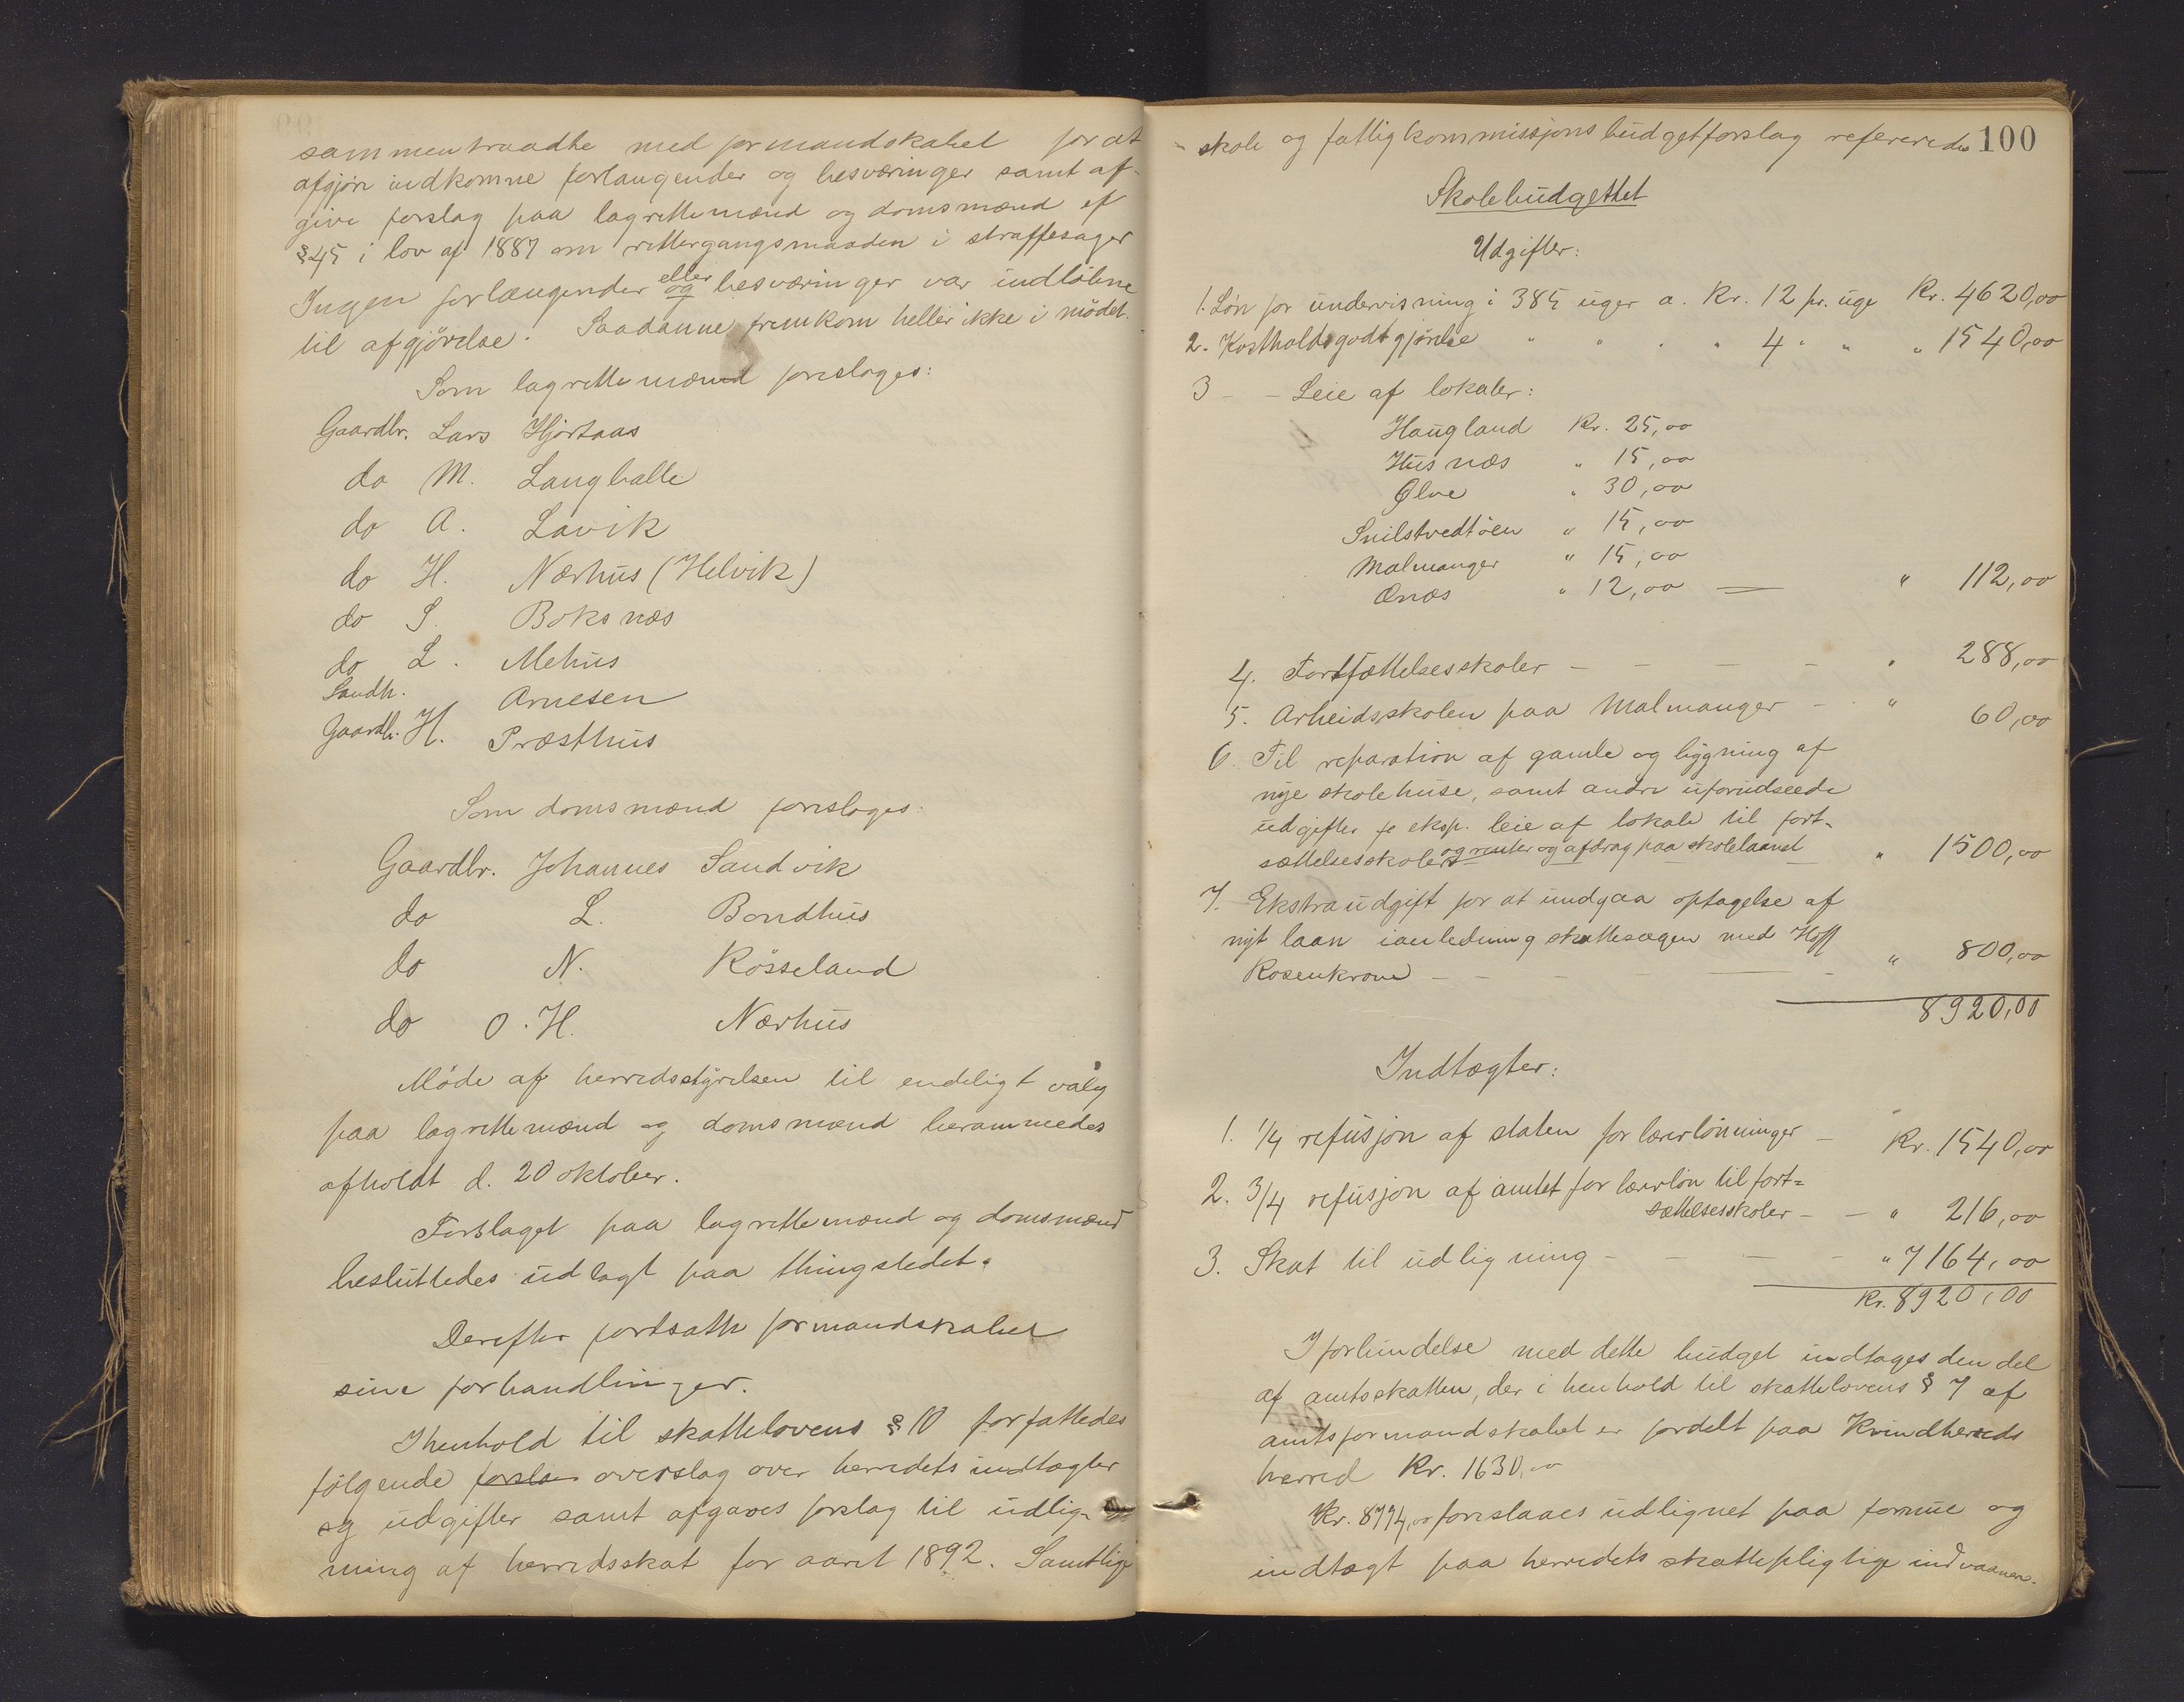 sammentraadte med formandskabet for at
afgjøre indkomne forlangender og besværinger samt af-
give forslag paa lagrettemænd og domsmænd ef
§ 45 i lov af 1887 om rettergangsmaaden i straffesager
Ingen forlangender og eller besværinger var indløbne
til afgjørelse. Saadanne fremkom heller ikke i mødet.
Som lagrettemænd foresloges:
Gaardbr. Lars Hjørtaas
do M. Langballe
do A. Lavik
do H. Nærhus (Helvik)
do S. Boksnæs
do L. Mehus
Landh. Arnesen
Gaardb. H. Præsthus
Som domsmænd foresloges:
Gaardbr. Johannes Sandvik
do L. Bondhus
do N. Røsseland
do O. H. Nærhus
Møde af herredsstyrelsen til endeligt valg
paa lagrettemænd og domsmænd berammedes
afholdt d. 20 oktober.
Forslaget paa lagrettemænd og domsmænd
besluttedes udlagt paa thingstedet.
Derefter fortsatte formandskabet
sine forhandlinger.
I henhold til skattelovens § 10 forfattedes
følgende forsla overslag over herredets indtægter
og udgifter samt afgaves forslag til udlig-
ning af herredsskat for aaret 1892. Samtlige
100
skole og fattigkommissjons budgetforslag refereredes
Skolebudgettet
Udgifter:
1. Løn for undervisning i 385 uger a. Kr. 12 pr. uge Kr. 4620,00
2. Kostholdsgodtgjørelse " " " " 4 " " " 1540,00
3 - - Leie af lokaler:
Haugland Kr. 25,00
Husnæs " 15,00
Ølve " 30,00
Snilstvedtøen " 15,00
Malmanger " 15,00
Ænæs " 12,00 — " 112,00
4. Fortsættelsesskoler - - - - " 288,00
5. Arbeidsskolen paa Malmanger - " 60,00
6. Til reparation af gamle og bygning af
nye skolehuse, samt andre uforudseede
udgifter fr eksp. leie af lokale til fort-
sættelsesskolers og renter og afdrag paa skolelaanet " 1500,00
7. Ekstraudgift for at undgaa optagelse af
nyt laan ianledning skattesagen med Hoff
Rosenkrone - - - - - " 800,00
8920,00
Indtægter:
1. 1/4 refusjon af staten for lærerlønninger - Kr. 1540,00
2. 3/4 refusjon af amtet for lærerløn til fort=
sættelsesskoler - - " 216,00
3. Skat til udligning - - - - " 7164,00
Kr. 8920,00
I forbindelse med dette budget indtages den del
af amtsskatten, der i henhold til skattelovens § 7 af
amtsformandskabet er fordelt paa Kvindherreds
herred Kr. 1630,00
Kr. 8794,00 foreslaaes udlignet paa formue og
indtægt paa herredets skattepligtige indvaanere.